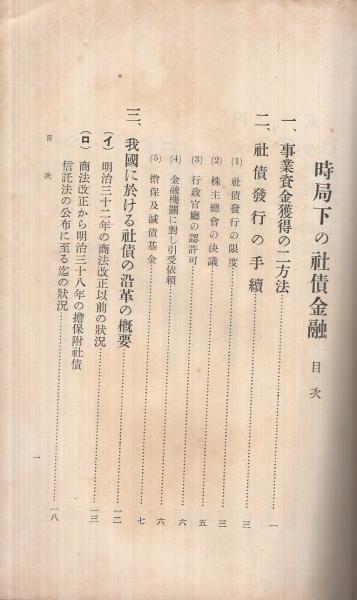 時局下の社債金融 目次
一、事業資金獲得の二方法……一
二、社債發行の手續……三
(1) 社債發行の限度……三
(2) 株主總會の決議……三
(3) 行政官廳の認許可……五
(4) 金融機關に對し引受依頼……六
(5) 擔保及減債基金……七
三、我國に於ける社債の沿革の概要……一二
(イ) 明治三十二年の商法改正以前の狀況……一三
(ロ) 商法改正から明治三十八年の擔保附社債
信託法の公布に至る迄の狀況……一八
目次 一